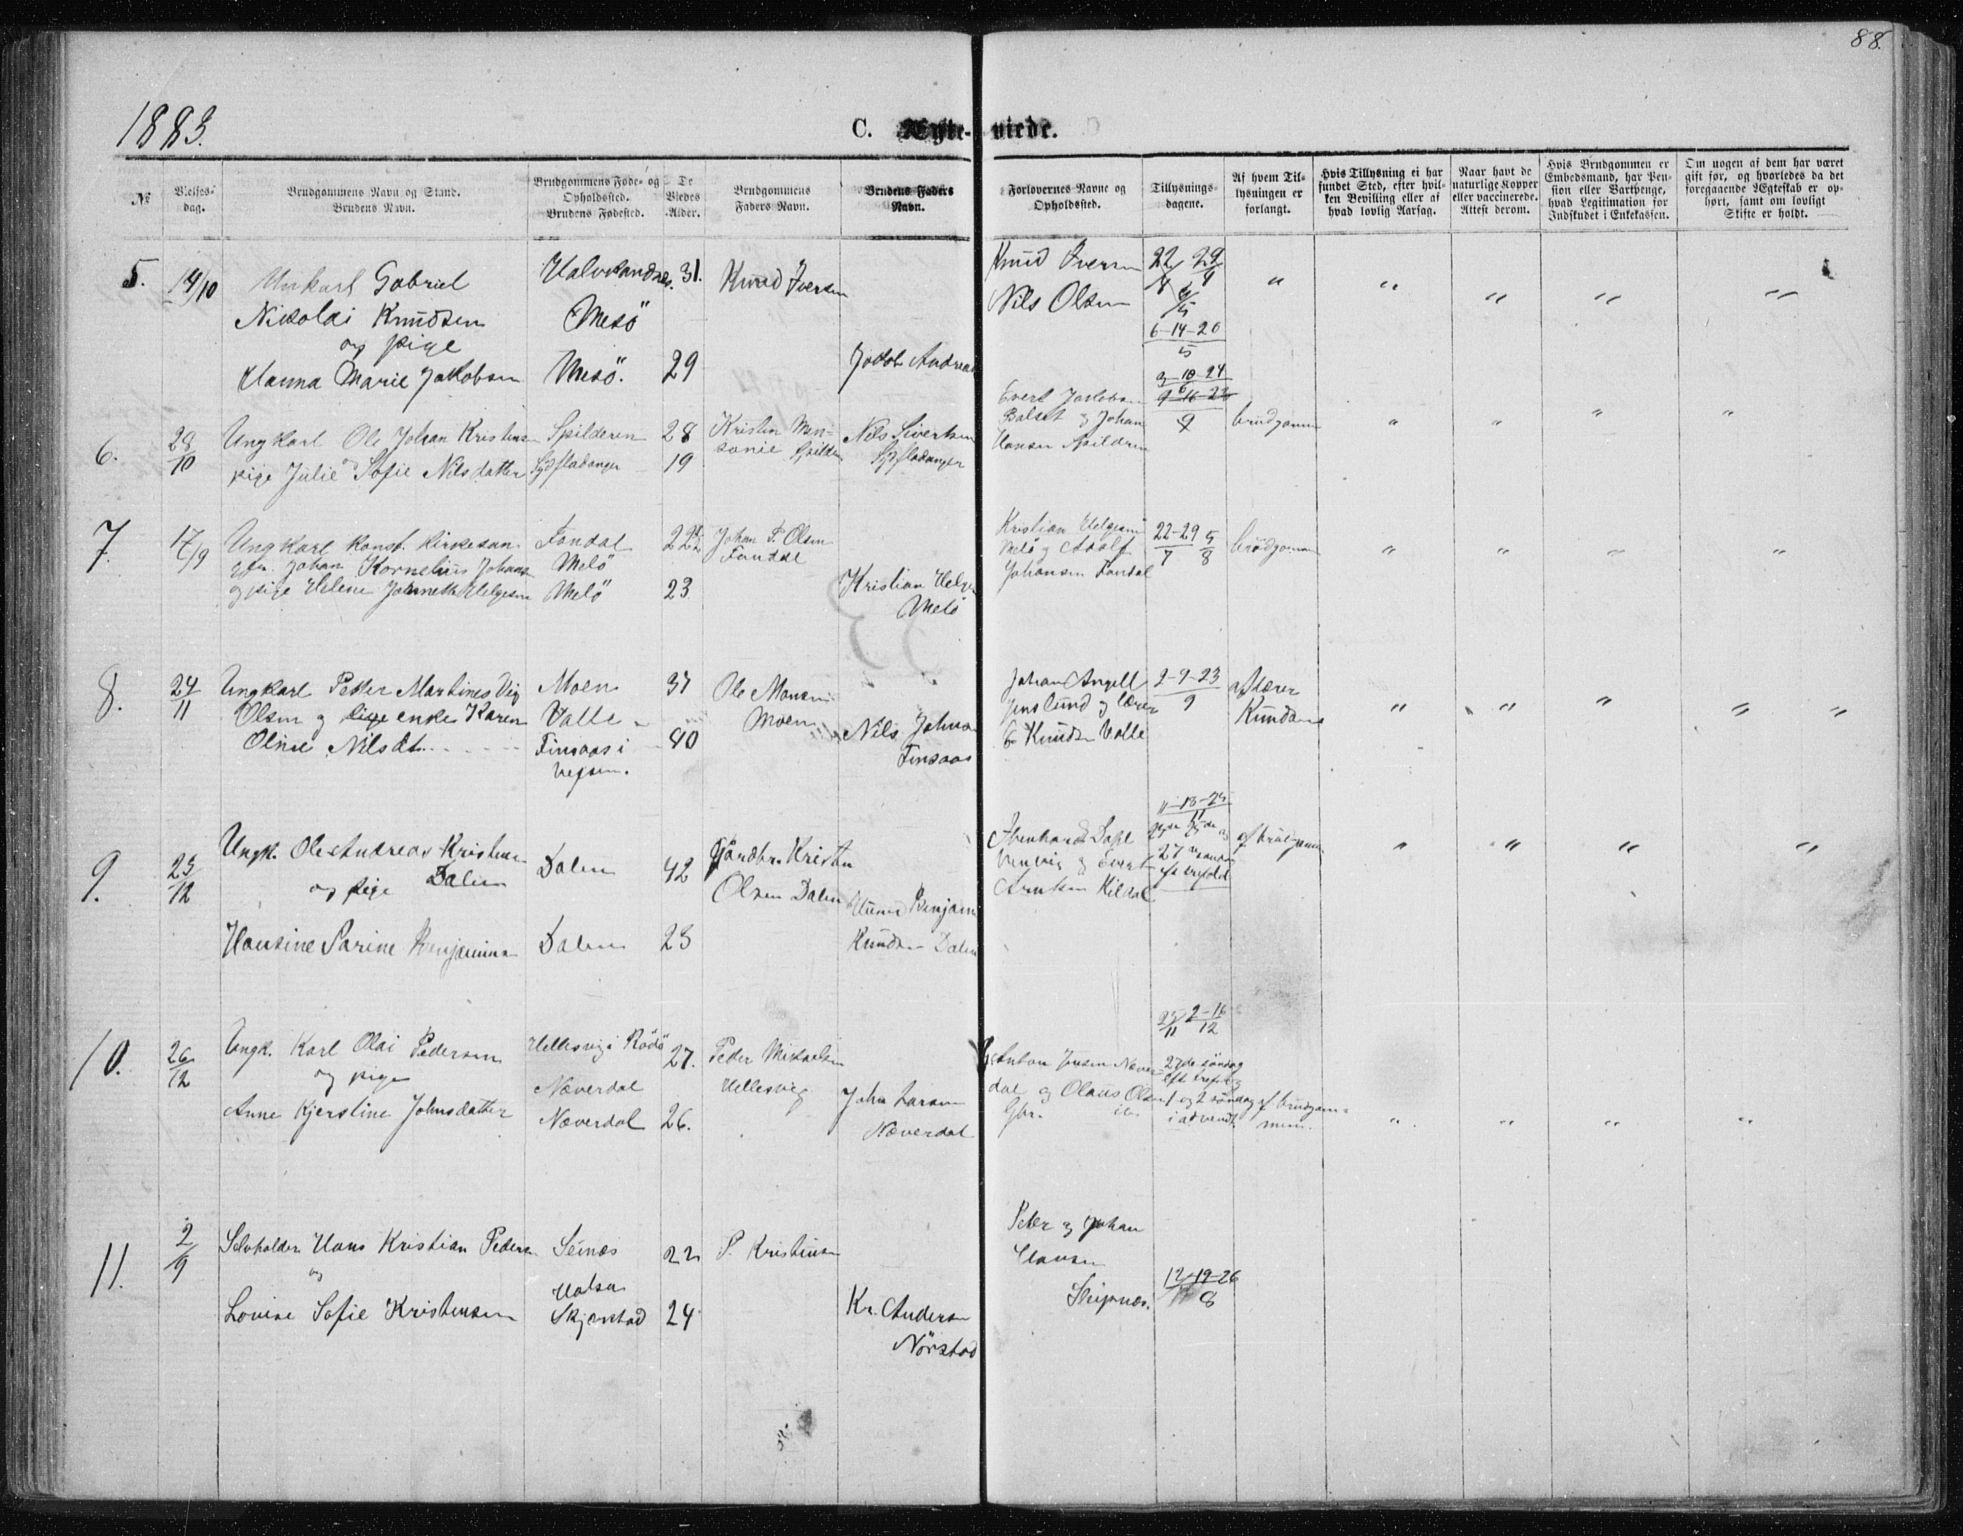 88.
1883.
C. Ægte- viede.
№
Vielses-
dag.
Brudgommens Navn og Stand.
Brudens Navn.
Brudgommens Føde- og
Opholdssted.
Brudens Fødested.
De
Viedes
Alder.
Brudgommens
Faders Navn.
Brudens Faders
Navn.
Forlovernes Navne og
Opholdssted.
Tillysnings-
dagene.
Af hvem Til-
lysningen er
forlangt.
Hvis Tillysning ei har
fundet Sted, efter hvil-
ken Bevilling eller af
hvad lovlig Aarsag.
Naar havt de
naturlige Kopper
eller vaccinerede.
Attest derom.
Hvis Brudgommen er
Embedsmand, har Pen-
sion eller Vartpenge,
hvad Legitimation for
Indskudet i Enkekassen.
Om nogen af dem har været
gift før, og hvorledes da det
foregaaende Ægteskab er op-
hørt, samt om lovligt
Skifte er holdt.
5. 14/10 Unkarl Gabriel
Nikolai Knudsen
og pige
Hanna Marie Jakobsen
Mesö
Mesö.
31.
29
Knud Iversen
Knud Iversen
Nils Olsen
22 29
6-14-20
" " " " "
6. 28/10 Ungkarl Ole Johan Kristensen
og
pige Julie Sofie Nilsdatter
Spilderen
Sydfladanger
28
19
Nils Sivertsen
Sydfladanger
Evert Jakobsen
og Johan
Hansen Spildren
3-10-24
brudgommen
" " " "
7. 17/9 Ungkarl konst. kirkesan-
ger Johan Kornelius Johansen
og pige Helene Johnette Helgesen
Fondal
Melö
Melö
23
Johan P. Olsen
Fondal
Kristian Helgesen
Melö
Kristian Helgesen
Melö og Adolf
Johansen Fondal
22-29 5
7 8
brudgommen
" " " "
8. 24/11 Ungkarl Petter Martines Vig
Olsen og enke Karen
Oline Nilsdt.
Moen
Valle
Finsaas i
Vefsen.
37
40
Ole Monsen
Moen
Nils Johnsen
Finsaas
Johan Angell
Jenslund og lærer
Knudsen Valle
2-9-23
9
af lærer
Knudsen
" " " " "
9. 23/12 Ungk. Ole Andreas Kristensen
og pige Dalen
Hansine Sarine Benjaminsen
Dalen
Dalen
42
23
Gårdbr. Kristen
Olsen Dalen
Benjamin
Knudsen Dalen
Dahl
og Evert
Arntsen Kildal
11-18-25
11
af brudgommen
" " " "
10. 26/12 Ungk. Karl Olai Pedersen
og pige
Anne Kjerstine Johnsdatter
Hellesvig i Rödö
Næverdal
Næverdal
27.
26.
Peder Mikaelsen
Hellesvig
John Larsen
Næverdal
Anton Jensen Næver-
dal og Olaus Olsen
Gbr. ibd.
25 2-16
11 12
27de söndag
eft. trefold. og
1 og 2 söndag
i advent.
af brudgom-
men.
" " " "
11. 2/9 Selvholder Hans Kristian Pedersen
og
Lovise Sofie Kristensen
Seines
Skjerstad
22
24
P. Kristensen
Kr. Andersen
Nörstad
Peter og Johan
Clausen
Skipnes.
12-19-26
8